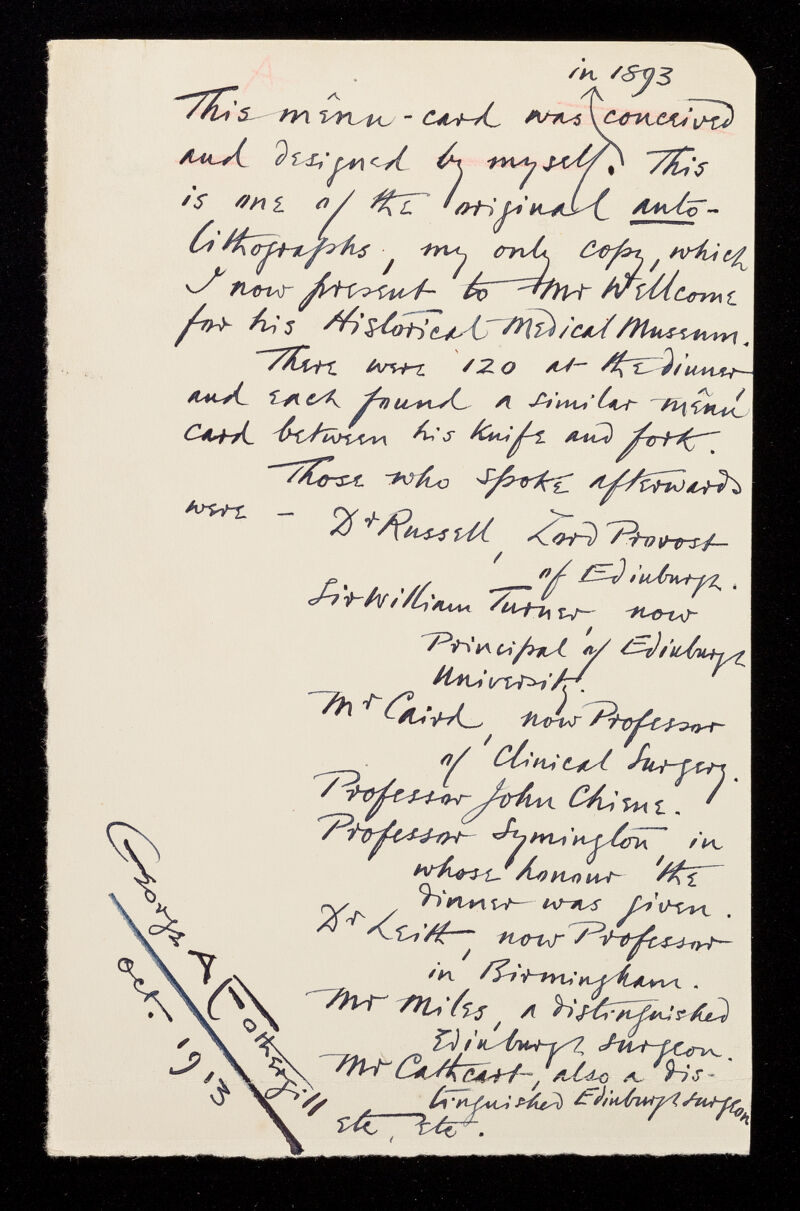 A
in 1893
This mênu-card was conceived
and designed by myself. This
is one of the original auto-
lithographs, my only copy, which
I now present to Mr Wellcome
for his Historical Medical Museum.
There were 120 at the dinner,
and each found a similar mênu
card between his knife and fork.
Those who spoke afterwards
were - Dr Russell, Lord Provost
of Edinburgh.
Sir William Turner, now
Principal of Edinburgh
University.
Mr Caird, now Professor
of Clinical Surgery.
Professor John Chiene.
Professor Symington, in
whose honour the
dinner was given.
Dr Leith, now Professor
in Birmingham.
Mr Miles, a distinguished
Edinburgh surgeon.
Mr Cathcart, also a dis-
tinguished Edinburgh surgeon
etc, etc.
George A Fothergill
Oct. 1913